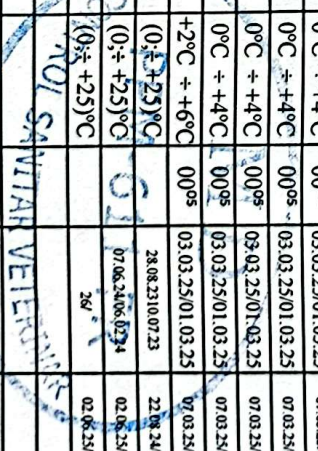 0°C ÷ +4°C 00⁰⁵ 03.03.25/01.03.25 07.03.25/
0°C ÷ +4°C 00⁰⁵ 03.03.25/01.03.25 07.03.25/
0°C ÷ +4°C 00⁰⁵ 03.03.25/01.03.25 07.03.25/
+2°C ÷ +6°C 00⁰⁵ 03.03.25/01.03.25 07.03.25/
(0;÷ +25)°C 28.08.2310.07.23 22.08.24/
(0;÷ +25)°C 07.06.24/06.02.24 02.06.25/
(0;÷ +25)°C 26/ 02.06.25/
SANITAR VETERINAR